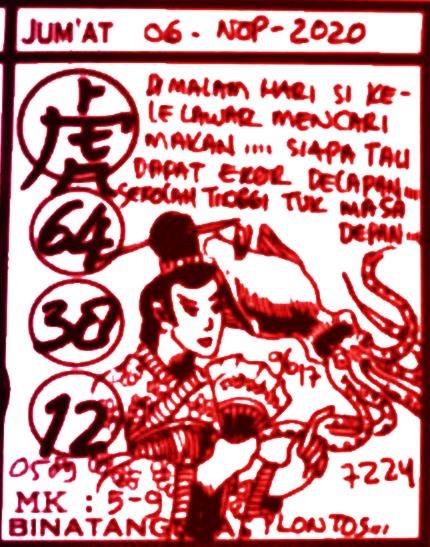 JUM'AT 06 - NOP - 2020
DI MALAM HARI SI KE-
LELAWAR MENCARI
MAKAN .... SIAPA TAU
DAPAT EKOR DELAPAN...
SEKOLAH TINGGI TUK MASA
DEPAN...
虎
64
38
12
9617
0589
7224
MK : 5-9
BINATANG